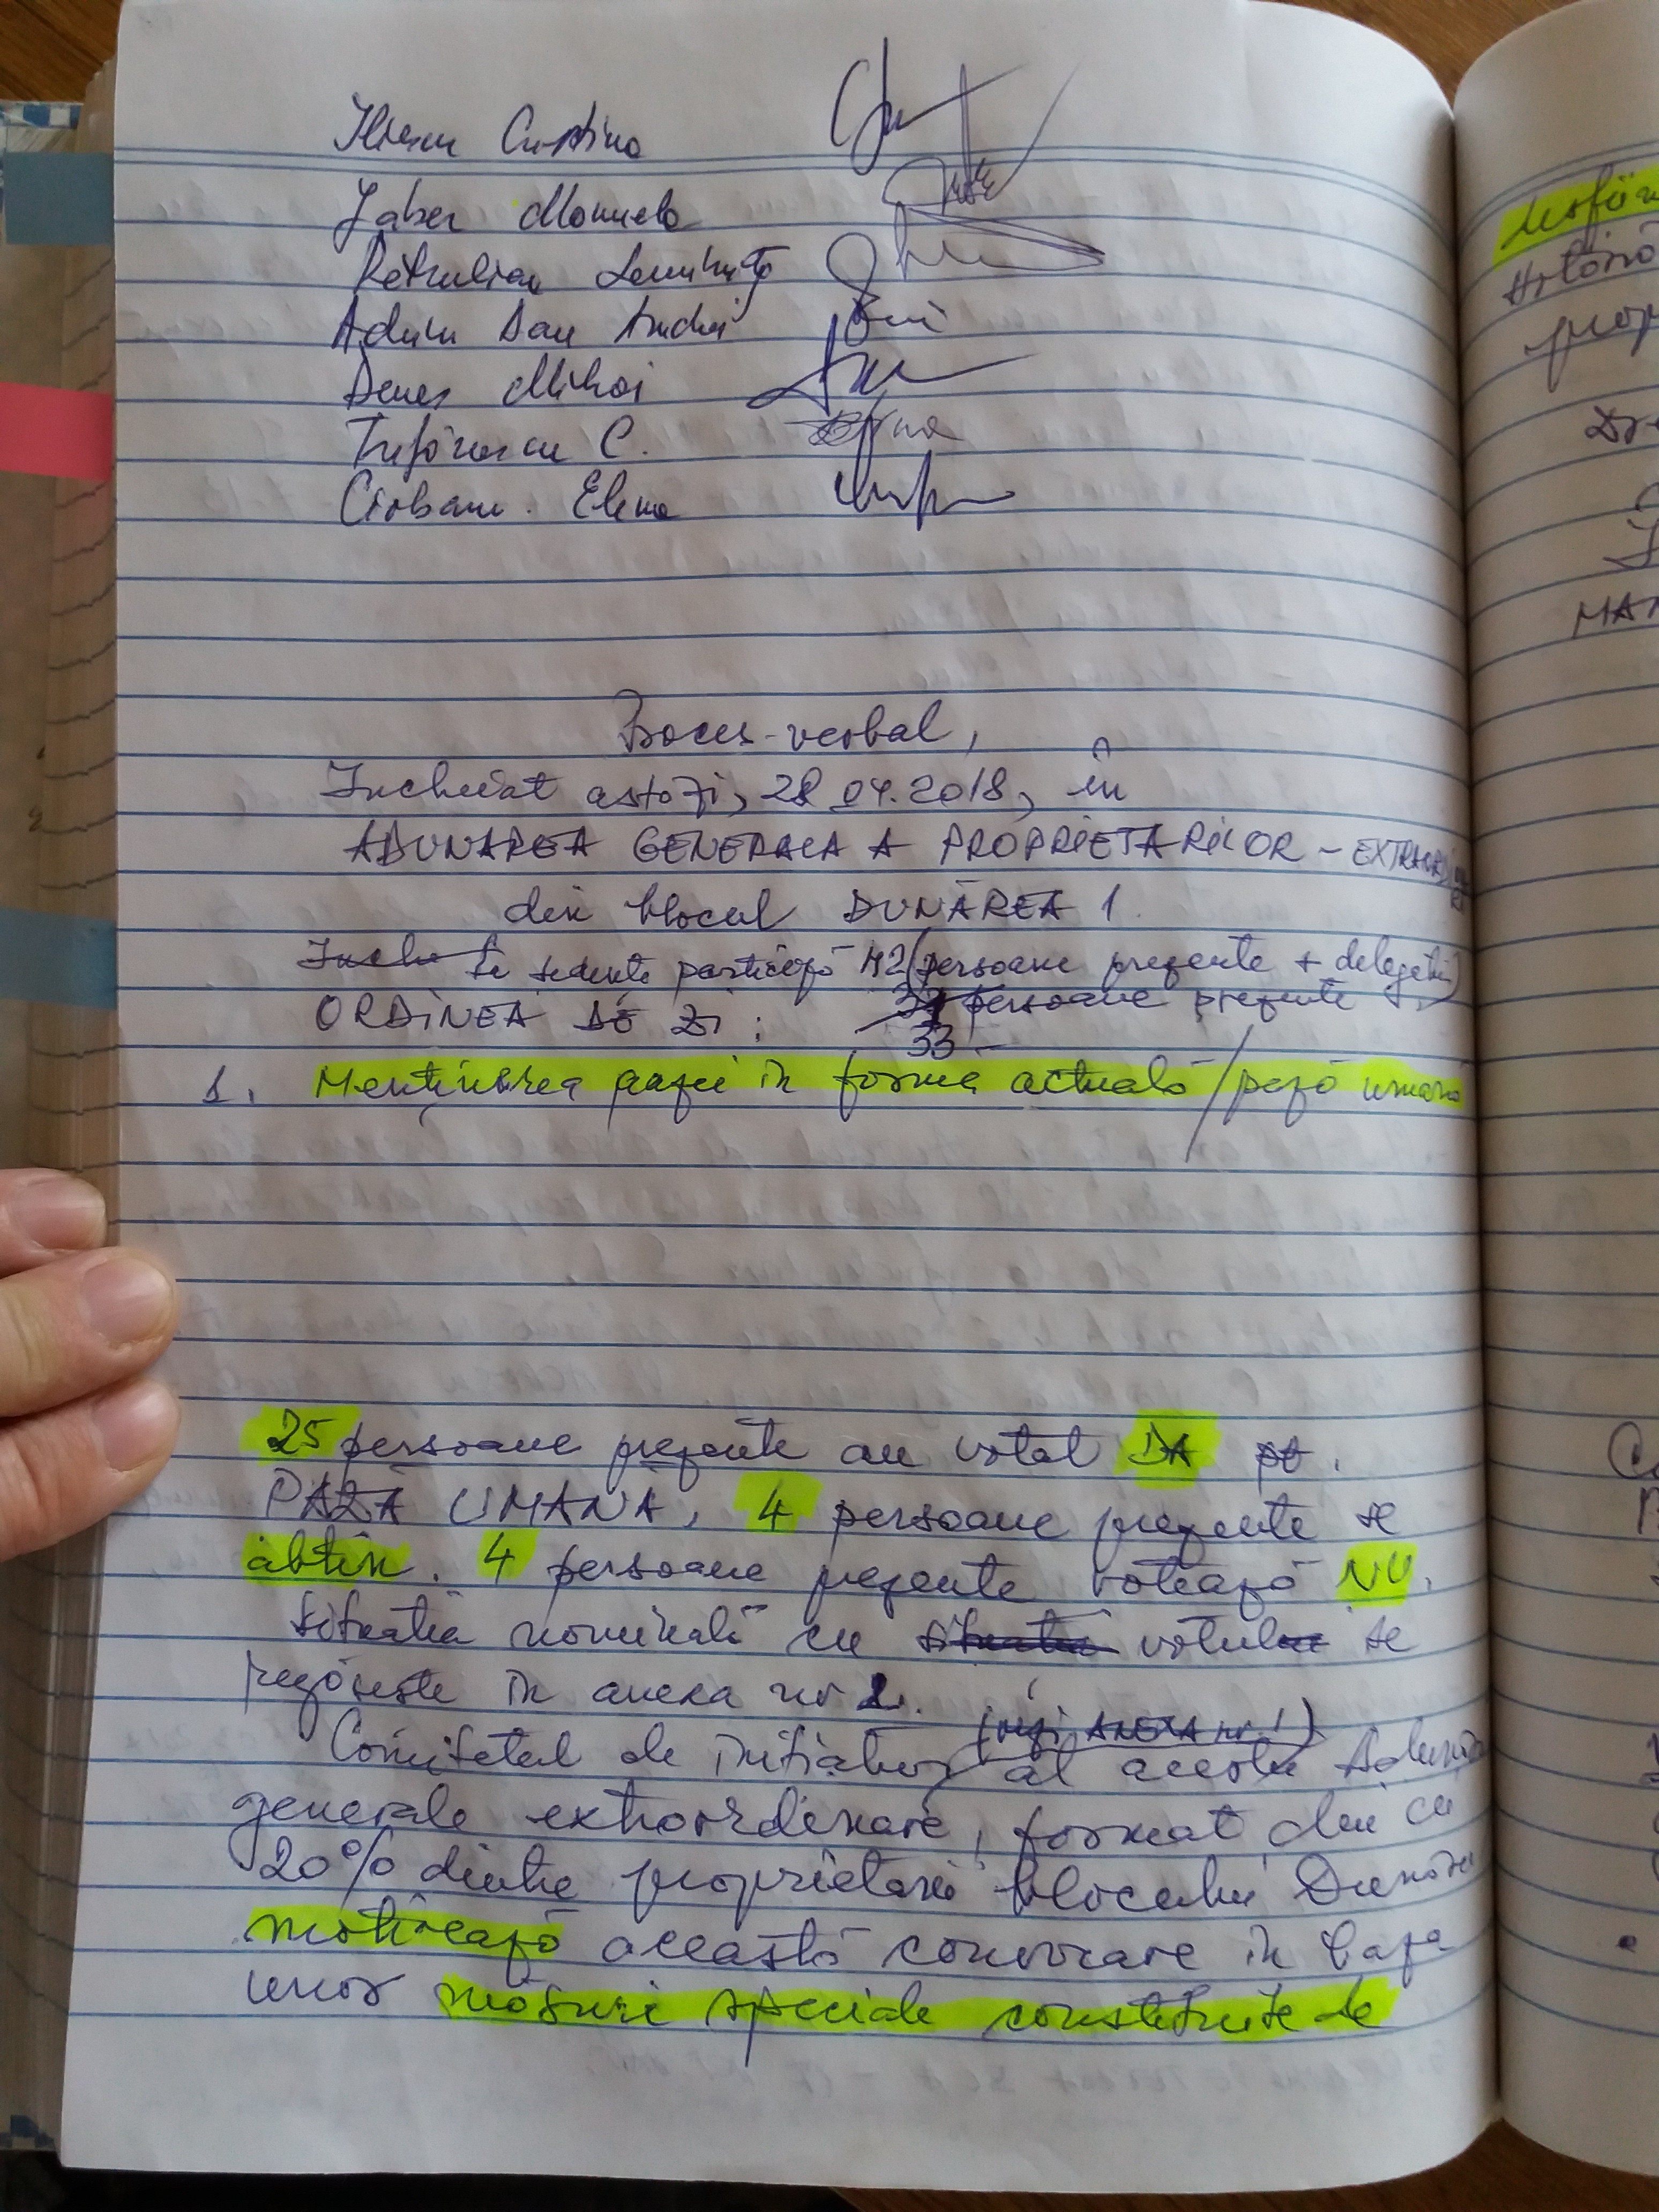 Iliescu Cristina
Jaber Manuela
Adam Dan Andrei
Denes Mihai
C.
Ciobanu. Elena
Proces-verbal,
Incheiat astăzi, 28.04.2018, în
ADUNAREA GENERALA A PROPRIETARILOR - EXTRAORDINARĂ
din blocul DUNĂREA 1.
Inche La sedinta participă 42 (persoane prezente + delegatii)
persoane prezente
ORDINEA DE ZI :
33
1. Menținerea pazei în forma actuală / pază umană
25 persoane prezente au votat DA pt.
PAZĂ UMANA, 4 persoane prezente se
abtin. 4 persoane prezente votează NU.
Situatia nominală cu situatia votului se
regăseste în anexa nr 1.
(vezi ANEXA nr. 1)
Comitetul de initiativă al acestei Adunări
generale extraordinare, format din
20% dintre proprietarii blocului Dunărea
motivează această convocare în baza
unor măsuri speciale constituite de
Co